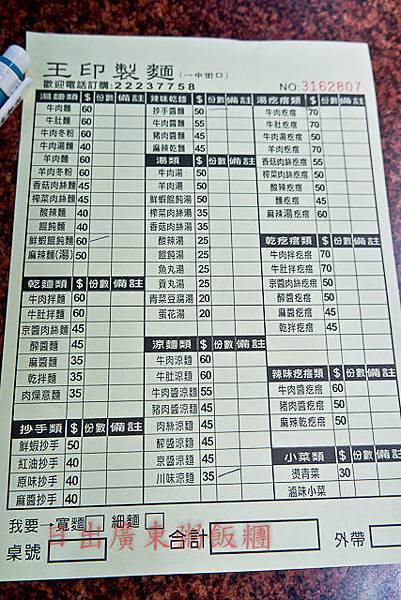 王印製麵(一中街口)
歡迎電話訂購:22237758
NO:3162807
湯麵類 $ 份數 備註
牛肉麵 60
牛肚麵 60
牛肉冬粉 60
牛肉湯麵 40
羊肉麵 60
羊肉冬粉 60
香菇肉絲麵 45
榨菜肉絲麵 45
酸辣麵 40
餛飩麵 40
鮮蝦餛飩麵 60
麻辣麵(湯) 50
乾麵類 $ 份數 備註
牛肉拌麵 60
牛肚拌麵 60
京醬肉絲麵 45
醡醬麵 45
麻醬麵 35
乾拌麵 35
肉燥意麵 35
抄手類 $ 份數 備註
鮮蝦抄手 50
紅油抄手 40
原味抄手 40
麻醬抄手 40
辣味乾麵 $ 份數 備註
抄手醬麵 50
牛肉醬麵 55
豬肉醬麵 45
麻辣乾麵 45
湯類 $ 份數 備註
牛肉湯 50
羊肉湯 50
鮮蝦餛飩湯 50
榨菜肉絲湯 35
香菇肉絲湯 35
酸辣湯 25
餛飩湯 25
魚丸湯 25
貢丸湯 25
青菜豆腐湯 20
蛋花湯 20
涼麵類 $ 份數 備註
牛肉涼麵 60
牛肚涼麵 60
牛肉醬涼麵 55
豬肉醬涼麵 45
肉絲涼麵 45
醡醬涼麵 45
京醬涼麵 45
川味涼麵 35
湯疙瘩類 $ 份數 備註
牛肉疙瘩 70
牛肚疙瘩 70
牛肉湯疙瘩 50
羊肉疙瘩 70
香菇肉絲疙瘩 55
榨菜肉絲疙瘩 55
酸辣疙瘩 50
麵疙瘩 45
麻辣湯疙瘩 60
乾疙瘩類 $ 份數 備註
牛肉拌疙瘩 70
牛肚拌疙瘩 70
京醬肉絲疙瘩 50
醡醬疙瘩 50
麻醬疙瘩 45
乾拌疙瘩 45
辣味疙瘩類 $ 份數 備註
牛肉醬疙瘩 60
豬肉醬疙瘩 50
麻辣乾疙瘩 50
小菜類 $ 份數 備註
燙青菜 30
滷味小菜
我要→寬麵 細麵
桌號 合計 外帶
日出廣東粥飯糰